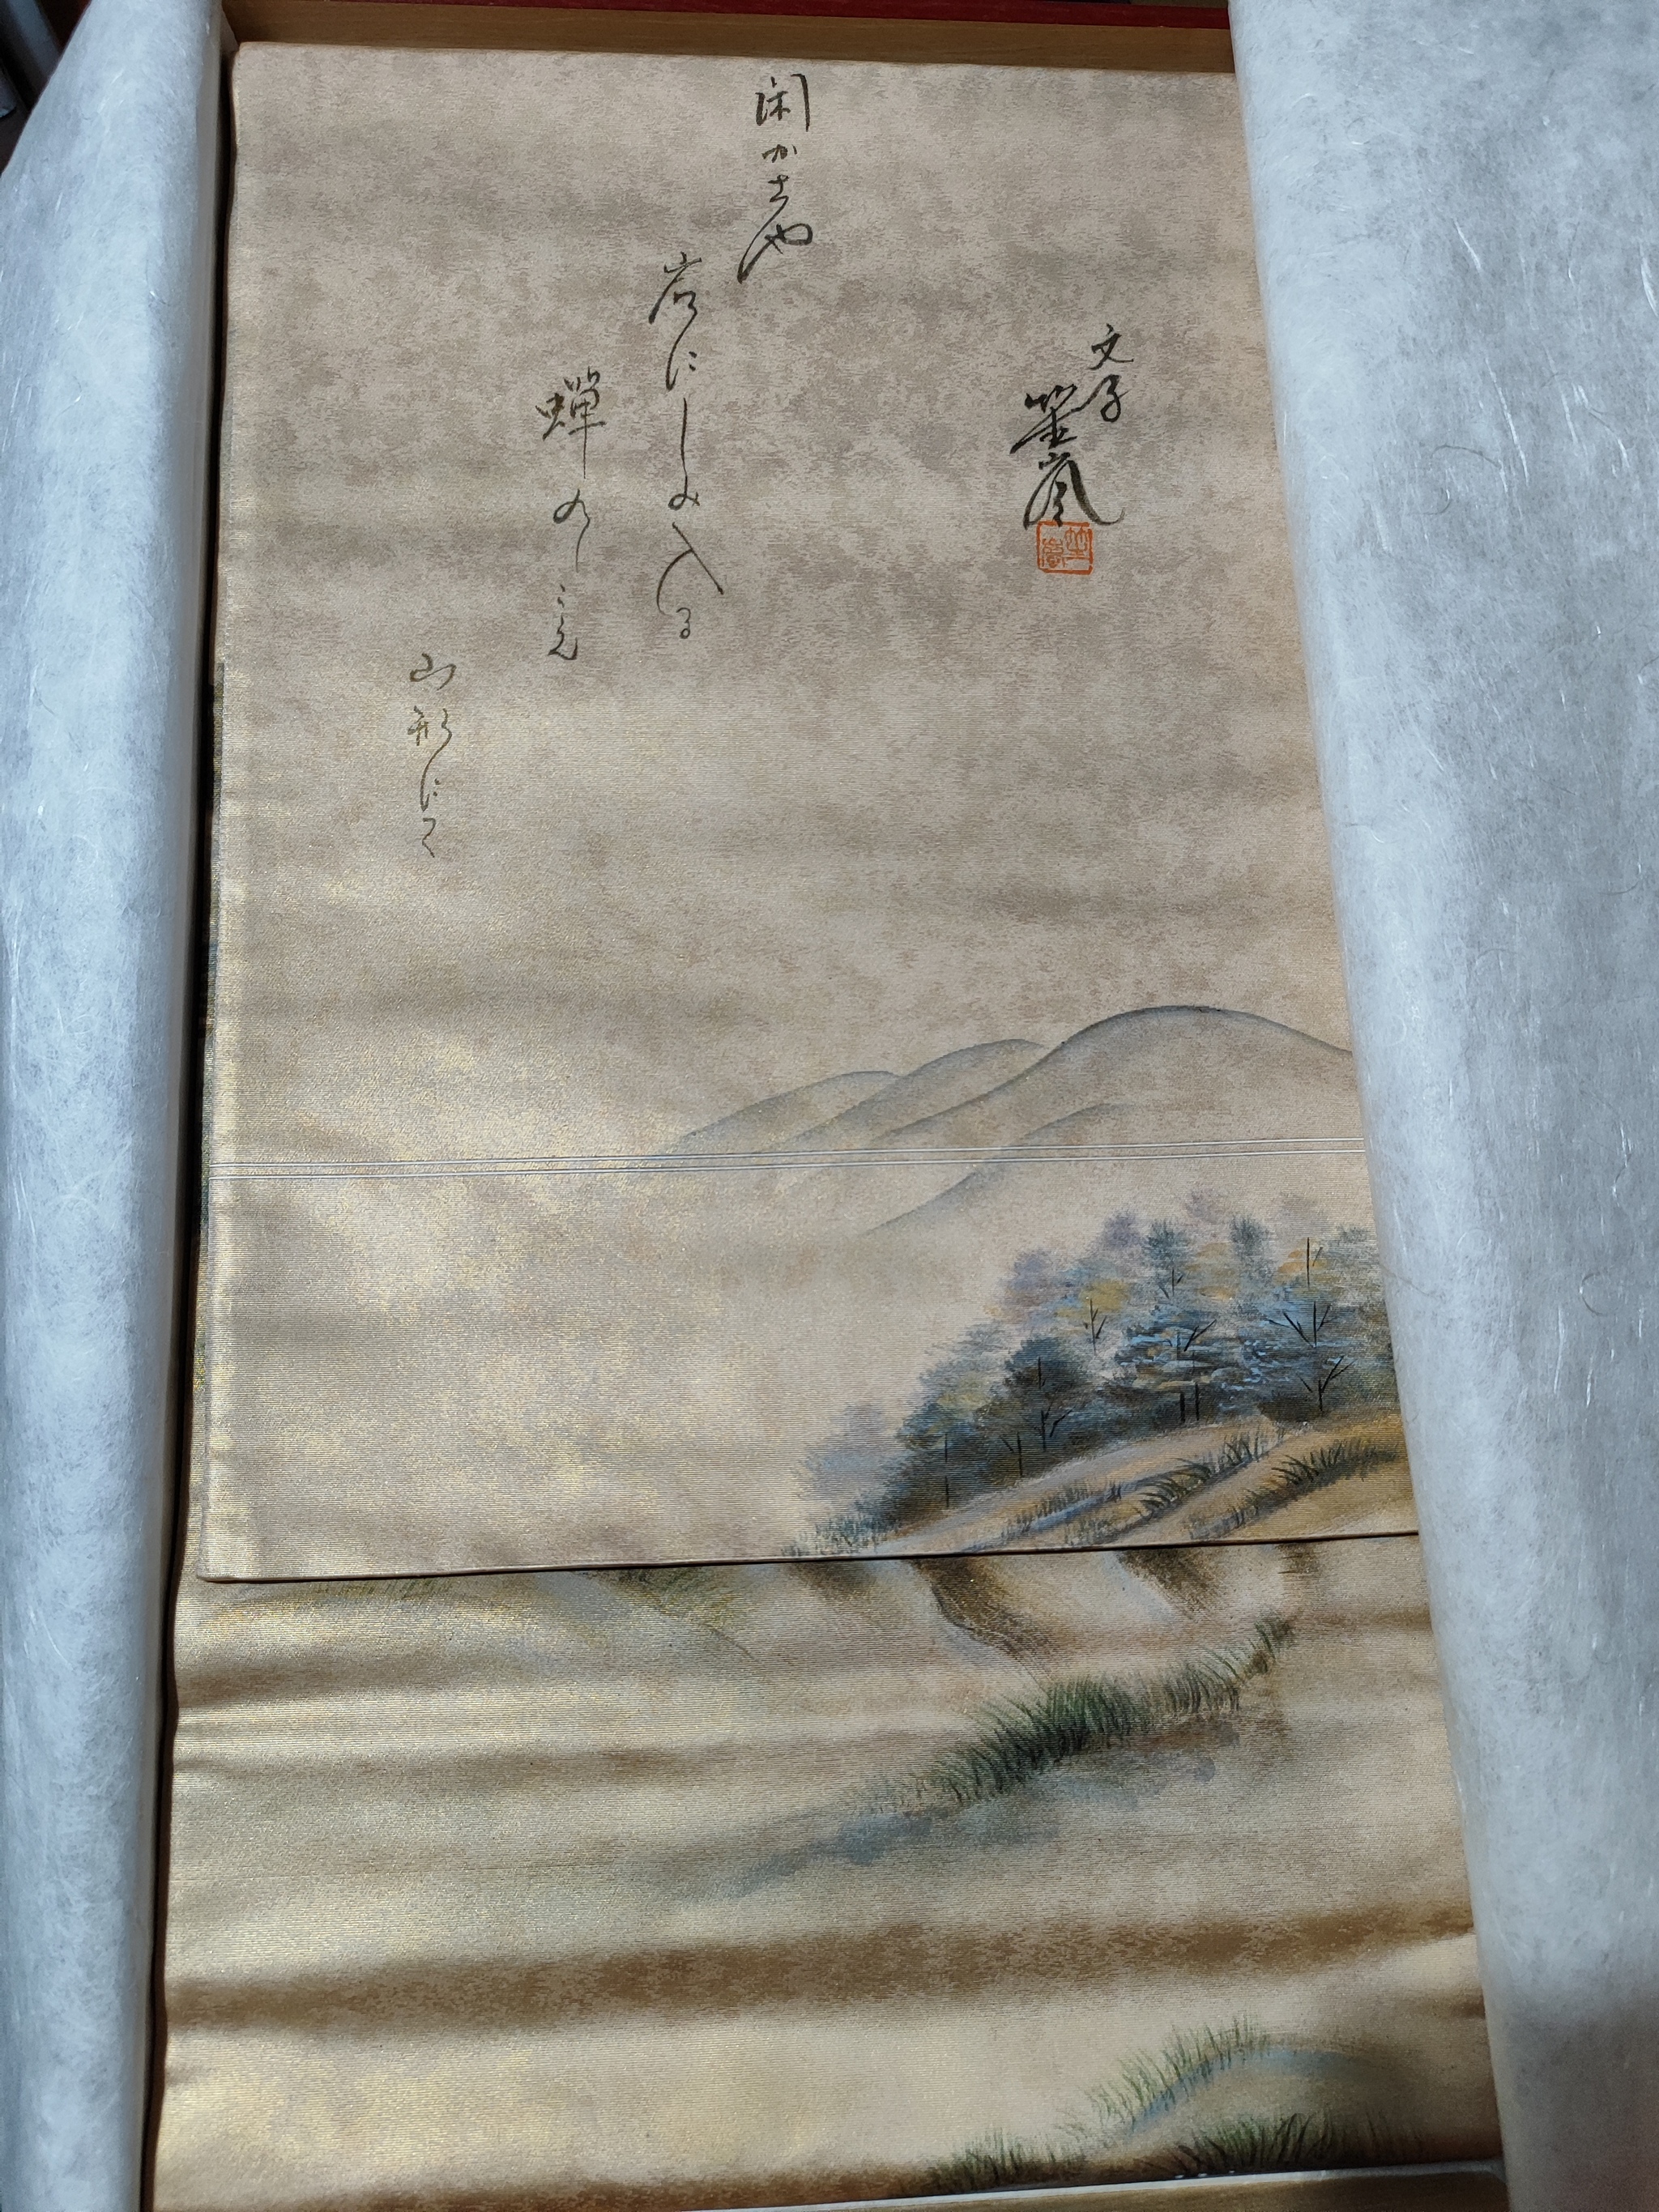 文子
笙嵐
閑かさや
岩にしみ入る
蝉のこえ
山形にて